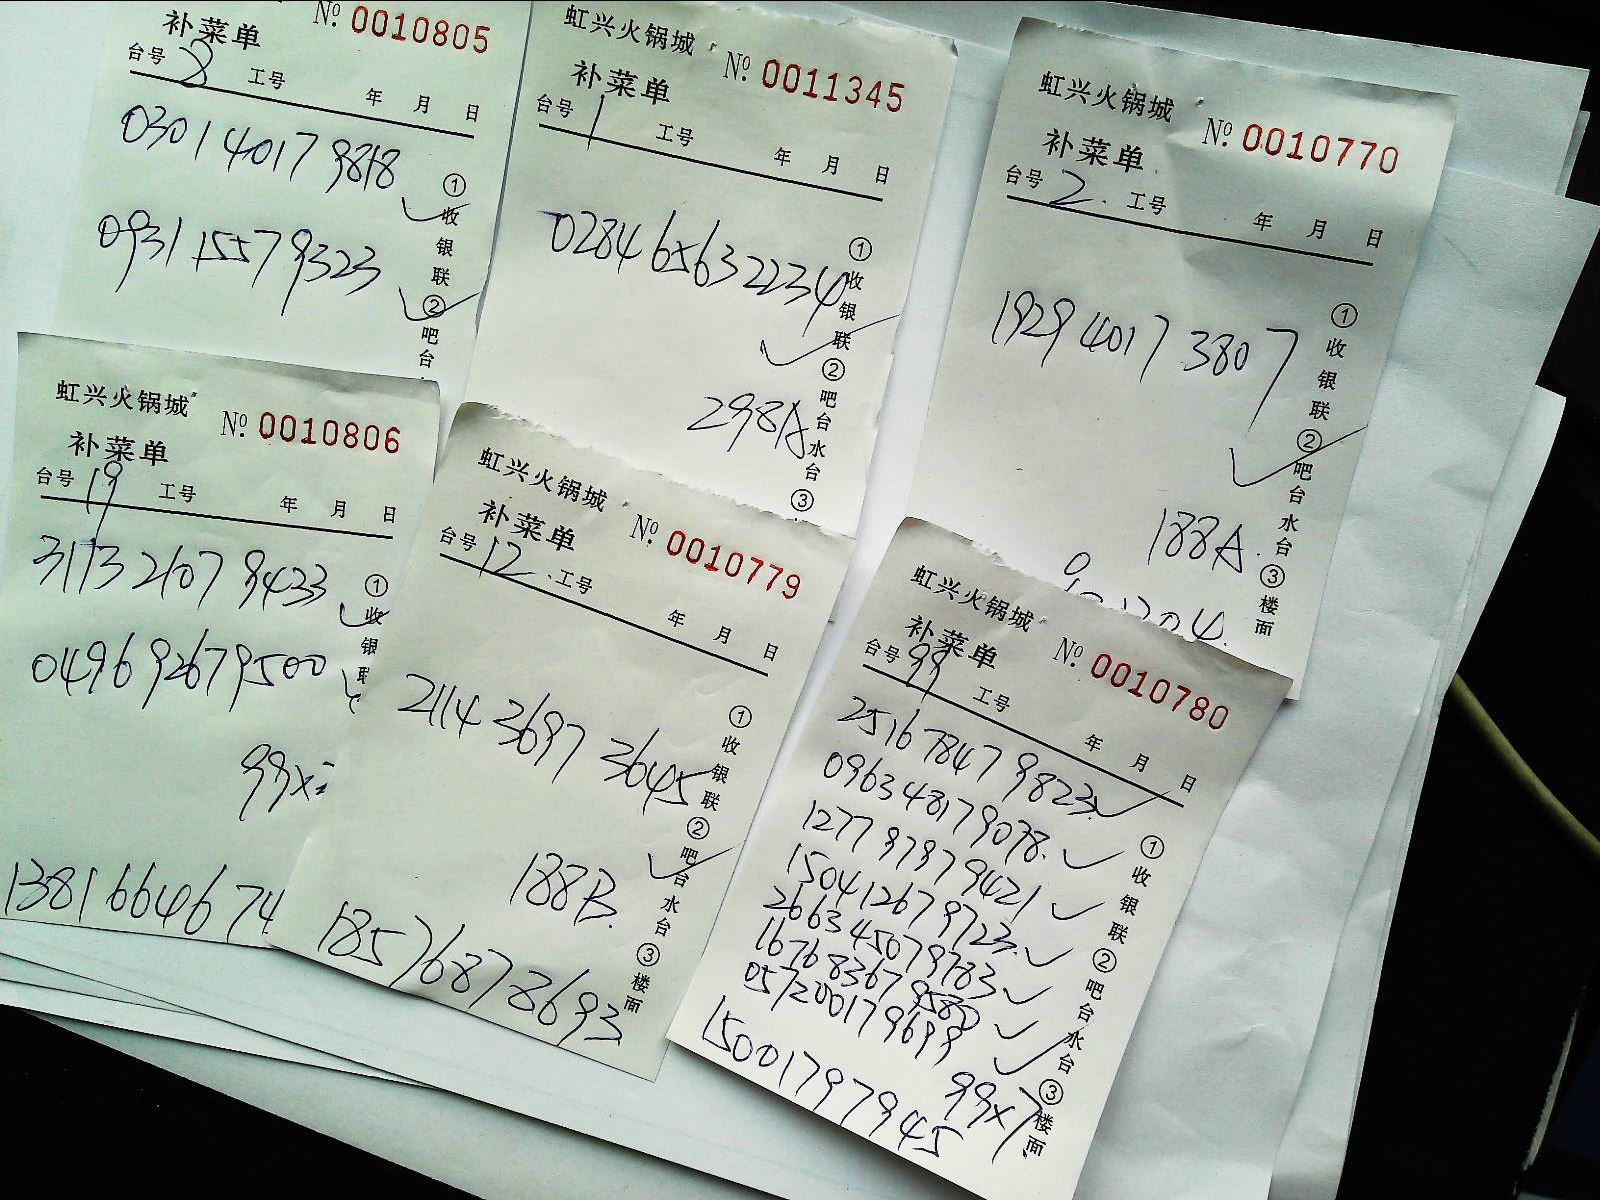 补菜单 No. 0010805
台号 8 工号 年 月 日
0301 4017 9818
0931 1557 9323
①收银联②吧台
虹兴火锅城 No. 0011345
补菜单
台号 1 工号 年 月 日
0284 6563 2234
298A
①收银联②吧台水台③
虹兴火锅城 No. 0010770
补菜单
台号 2. 工号 年 月 日
1929 4017 3807
188A.
①收银联②吧台水台③楼面
虹兴火锅城 No. 0010806
补菜单
台号 19 工号 年 月 日
3173 2107 9433
0496 9267 9500
99x
13816664674
①收银联
虹兴火锅城 No. 0010779
补菜单
台号 12. 工号 年 月 日
2114 3697 3645
188B.
18576873693
①收银联②吧台水台③楼面
虹兴火锅城 No. 0010780
补菜单
台号 99 工号 年 月 日
2516 7847 9823
0963 4817 9078.
1277 9797 9421
1504 1267 9723.
2663 4507 9783
1676 8367 9580
0572 0017 9699
99x7
15001797945
①收银联②吧台水台③楼面